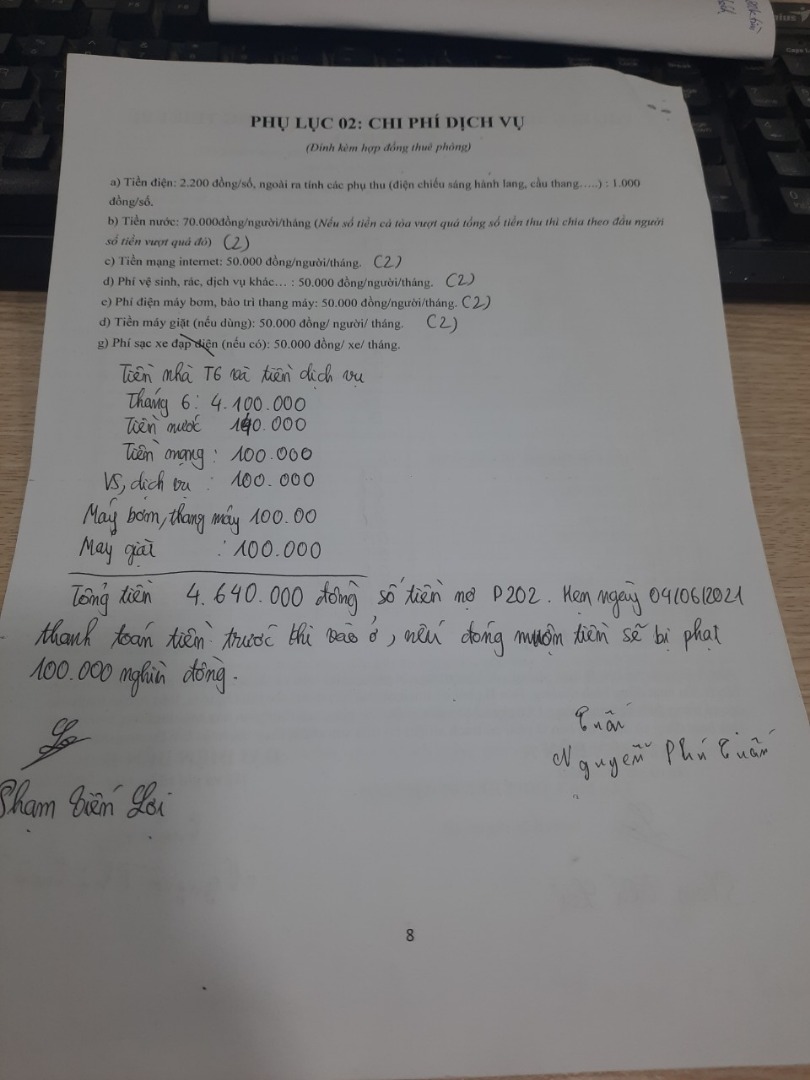 PHỤ LỤC 02: CHI PHÍ DỊCH VỤ
(Đính kèm hợp đồng thuê phòng)
a) Tiền điện: 2.200 đồng/số, ngoài ra tính các phụ thu (điện chiếu sáng hành lang, cầu thang…..) : 1.000
đồng/số.
b) Tiền nước: 70.000đồng/người/tháng (Nếu số tiền cả tòa vượt quá tổng số tiền thu thì chia theo đầu người
số tiền vượt quá đó) (2)
c) Tiền mạng internet: 50.000 đồng/người/tháng. (2)
d) Phí vệ sinh, rác, dịch vụ khác… : 50.000 đồng/người/tháng. (2)
e) Phí điện máy bơm, bảo trì thang máy: 50.000 đồng/người/tháng. (2)
d) Tiền máy giặt (nếu dùng): 50.000 đồng/ người/ tháng. (2)
g) Phí sạc xe đạp điện (nếu có): 50.000 đồng/ xe/ tháng.
Tiền nhà T6 và tiền dịch vụ
Tháng 6: 4.100.000
Tiền nước 140.000
Tiền mạng: 100.000
VS, dịch vụ : 100.000
Máy bơm, thang máy 100.00
Máy giặt : 100.000
Tổng tiền 4.640.000 đồng số tiền nợ P202. Hẹn ngày 04/06/2021
thanh toán tiền trước thì vào ở, nếu đóng muộn tiền sẽ bị phạt
100.000 nghìn đồng.
Tuấn
Nguyễn Phú Tuấn
Phạm Tiến Lợi
8